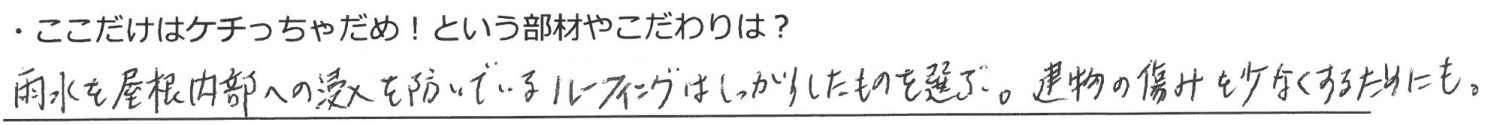 ・ここだけはケチっちゃだめ！という部材やこだわりは？
雨水を屋根内部への浸入を防いでいるルーフィングはしっかりしたものを選ぶ。建物の傷みを少なくするためにも。